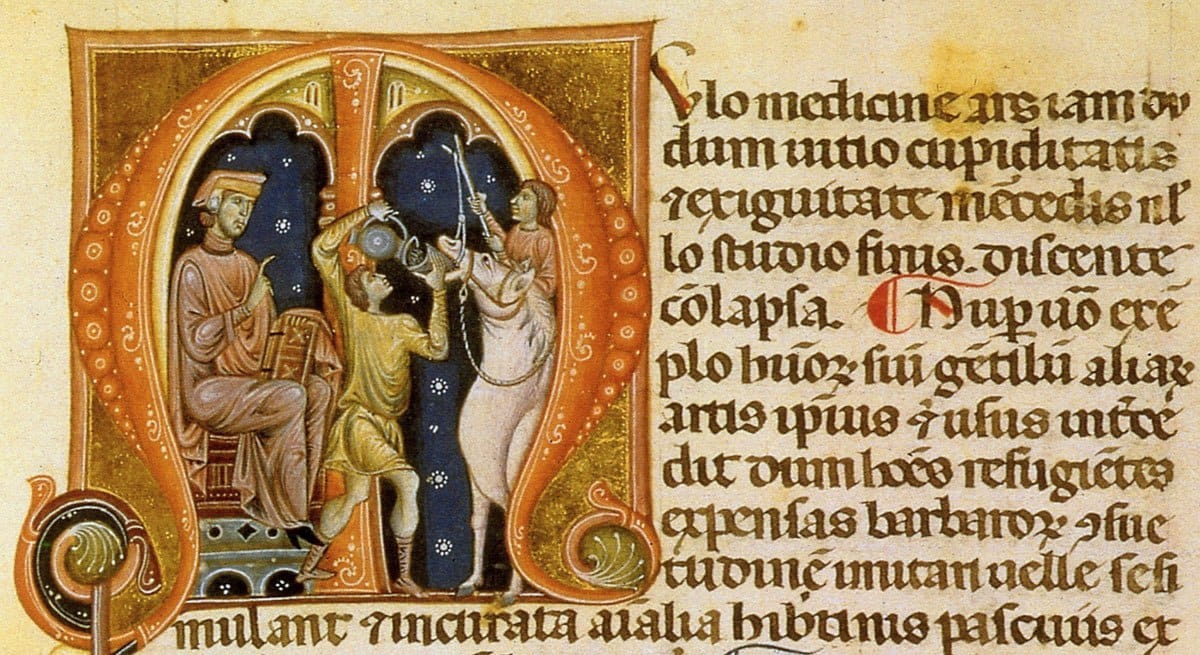 Mulo medicine ars iam du
dum uitio cupiditatis
⁊ exiguitate mēcedis nl̄
lo studio sius. discente
cōlapsa. Nuꝑ uō exē
plo hūoꝝ siū gētiliū aliaꝝ
artis ip̄ius ⁊ usus int̄ce
dit dum hoēs refugiētes
expensas barbaroꝝ ꝯsue
tudinē imitari uelle se si
mulant ⁊ incurata aīalia hib̄nis pascuis ex